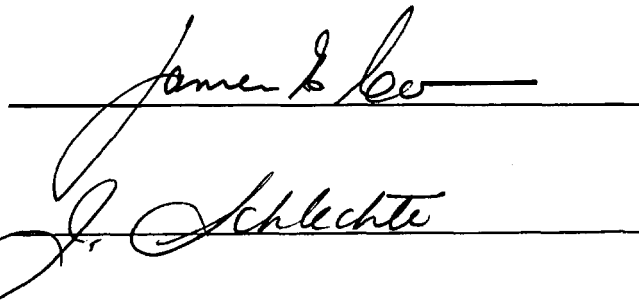 James E
J. Schlechte